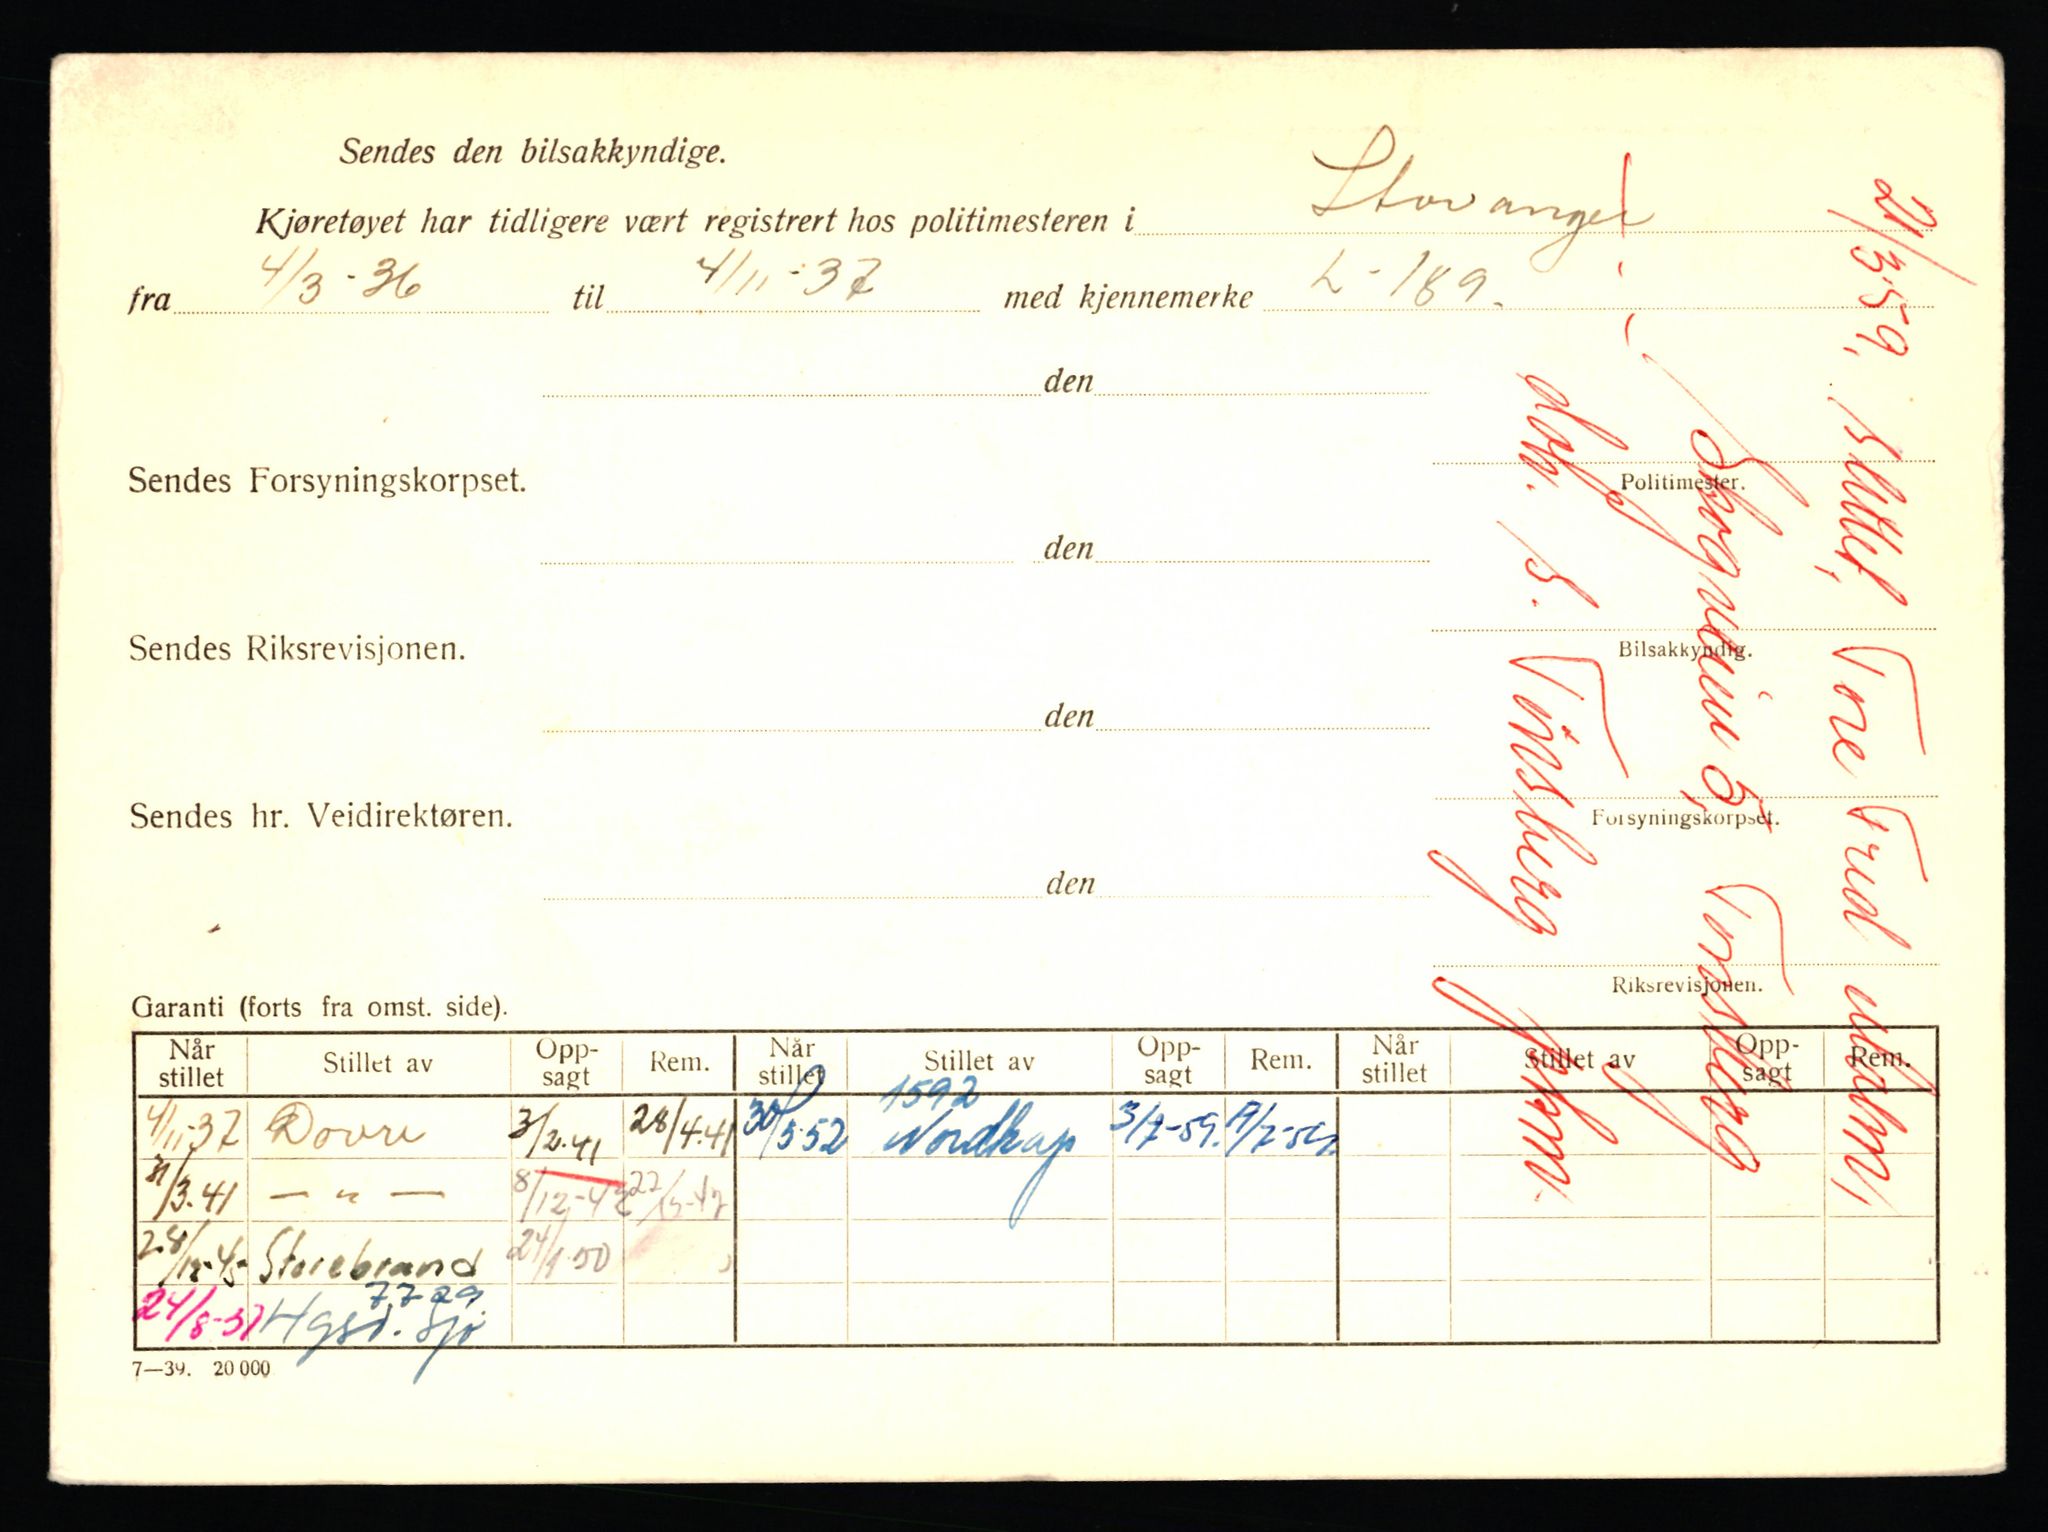 Sendes den bilsakkyndige.
Kjøretøyet har tidligere vært registrert hos politimesteren i Stavanger
fra 4/3-36 til 4/11-37 med kjennemerke L-189.
den
Politimester.
Sendes Forsyningskorpset.
den
Bilsakkyndig.
Sendes Riksrevisjonen.
den
Forsyningskorpset.
Sendes hr. Veidirektøren.
den
Riksrevisjonen.
21/3 59, Tore Trud
5, Torsberg
B.
Garanti (forts fra omst. side).
Når stillet Stillet av Opp-sagt Rem. Når stillet Stillet av Opp-sagt Rem. Når stillet Stillet av Opp-sagt Rem.
1592
4/11-37 Dovre 3/2.41 28/4.41 30/5.52 Nordkap 3/7-59. 9/7-59
31/3.41 — " — 8/12-42
28/12-45 Storebrand 24/1.50
7729
24/8-51 Hgsd. Sjø
7—39. 20 000